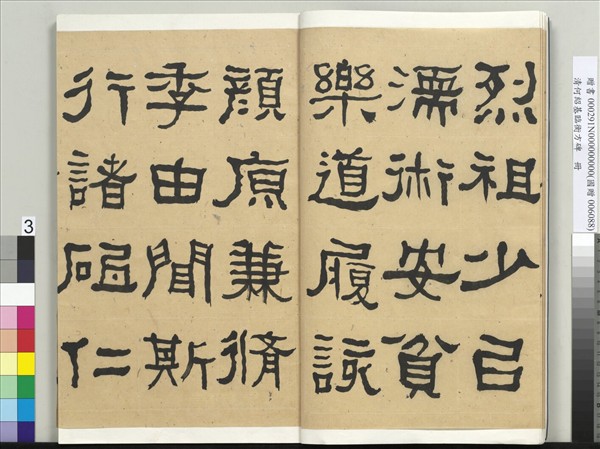 烈祖少㠯
濡術安貧
樂道履該
顏原兼脩
季由聞斯
行諸砥仁
贈書 000291N000000000(國贈 006088)
清何紹基臨衡方碑 冊
3